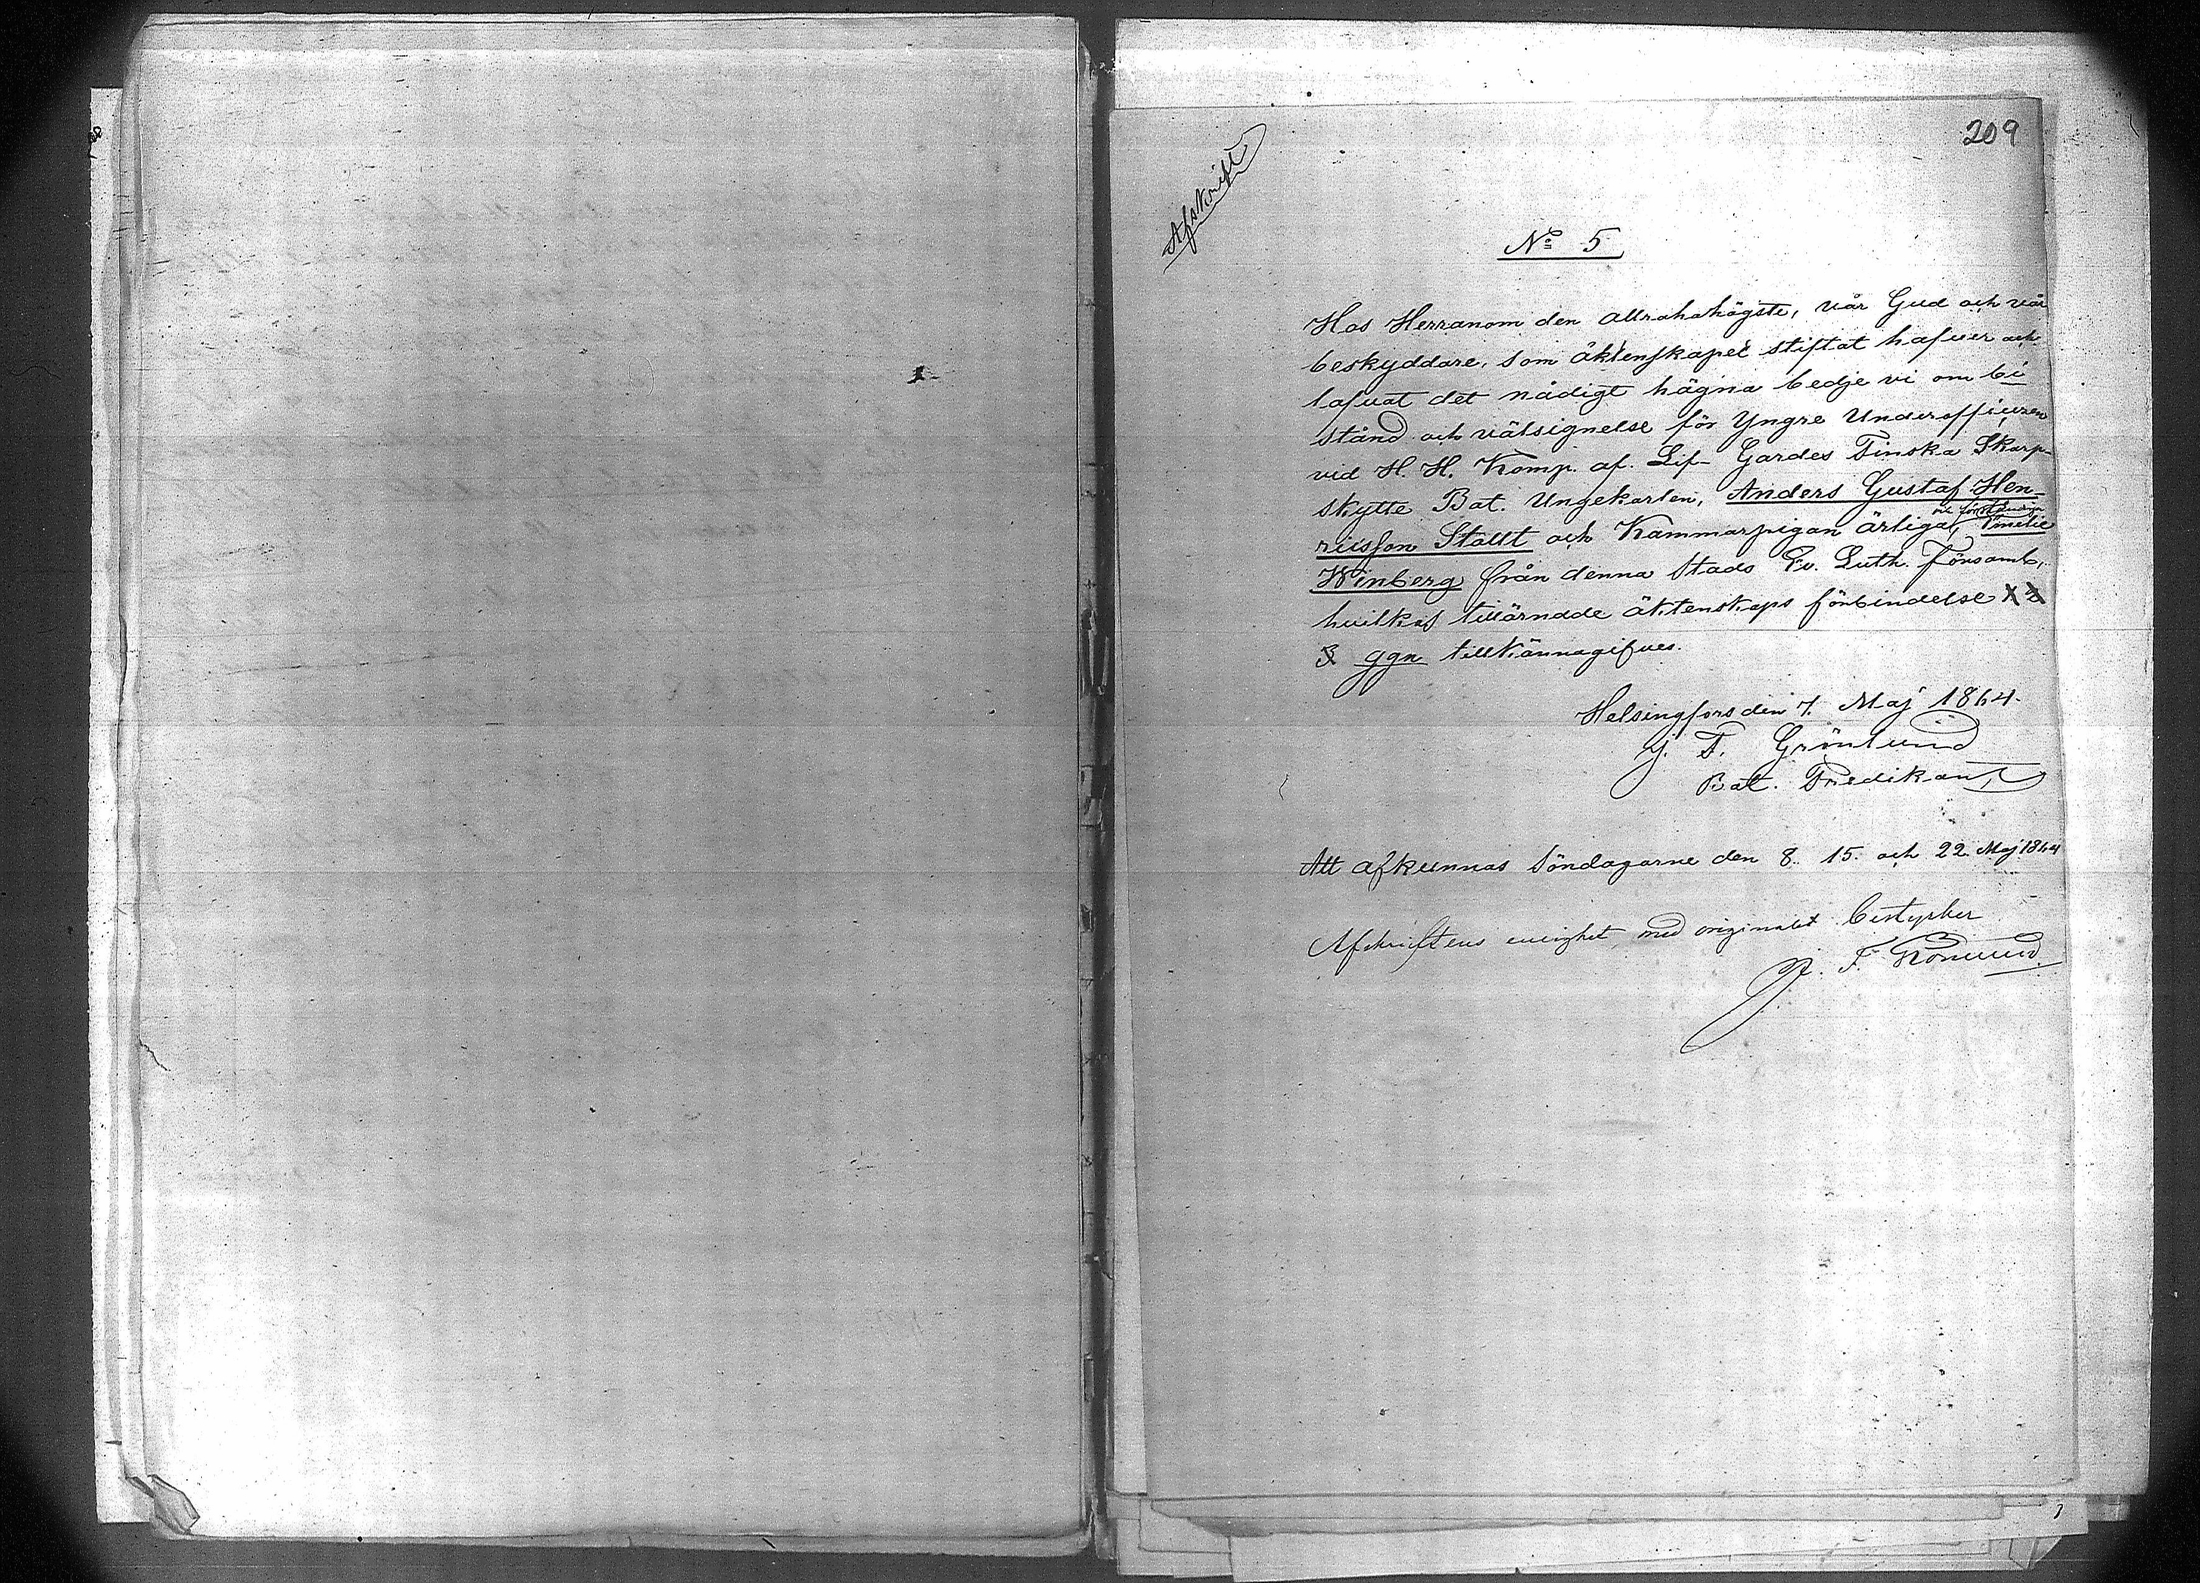 209
Afskrift
No 5
Hos Herranom den allrahögste, vår Gud och vår
beskyddare, som äktenskapet stiftat hafver och
lofvat det nådigt hägna bedje vi om bi
stånd och välsignelse för Yngre Underofficeren
vid H. H. Komp. af. Lif- Gardes Finska Skarp-
skytte Bat. Ungekarlen, Anders Gustaf Hen-
riksson Stallt och Kammarpigan ärliga och förståndiga Emelie
Winberg från denna Stads Ev. Luth. Församl.
hvilkas tillärnade äktenskaps förbindelse 1 2
3 ggn tillkännagifves.
Helsingfors den 7. Maj 1864.
J. F. Grönlund
Bat. Predikant
Att afkunnas Söndagarne den 8. 15. och 22. Maj 1864
Afskriftens enlighet med originalet bestyrker
J. F.